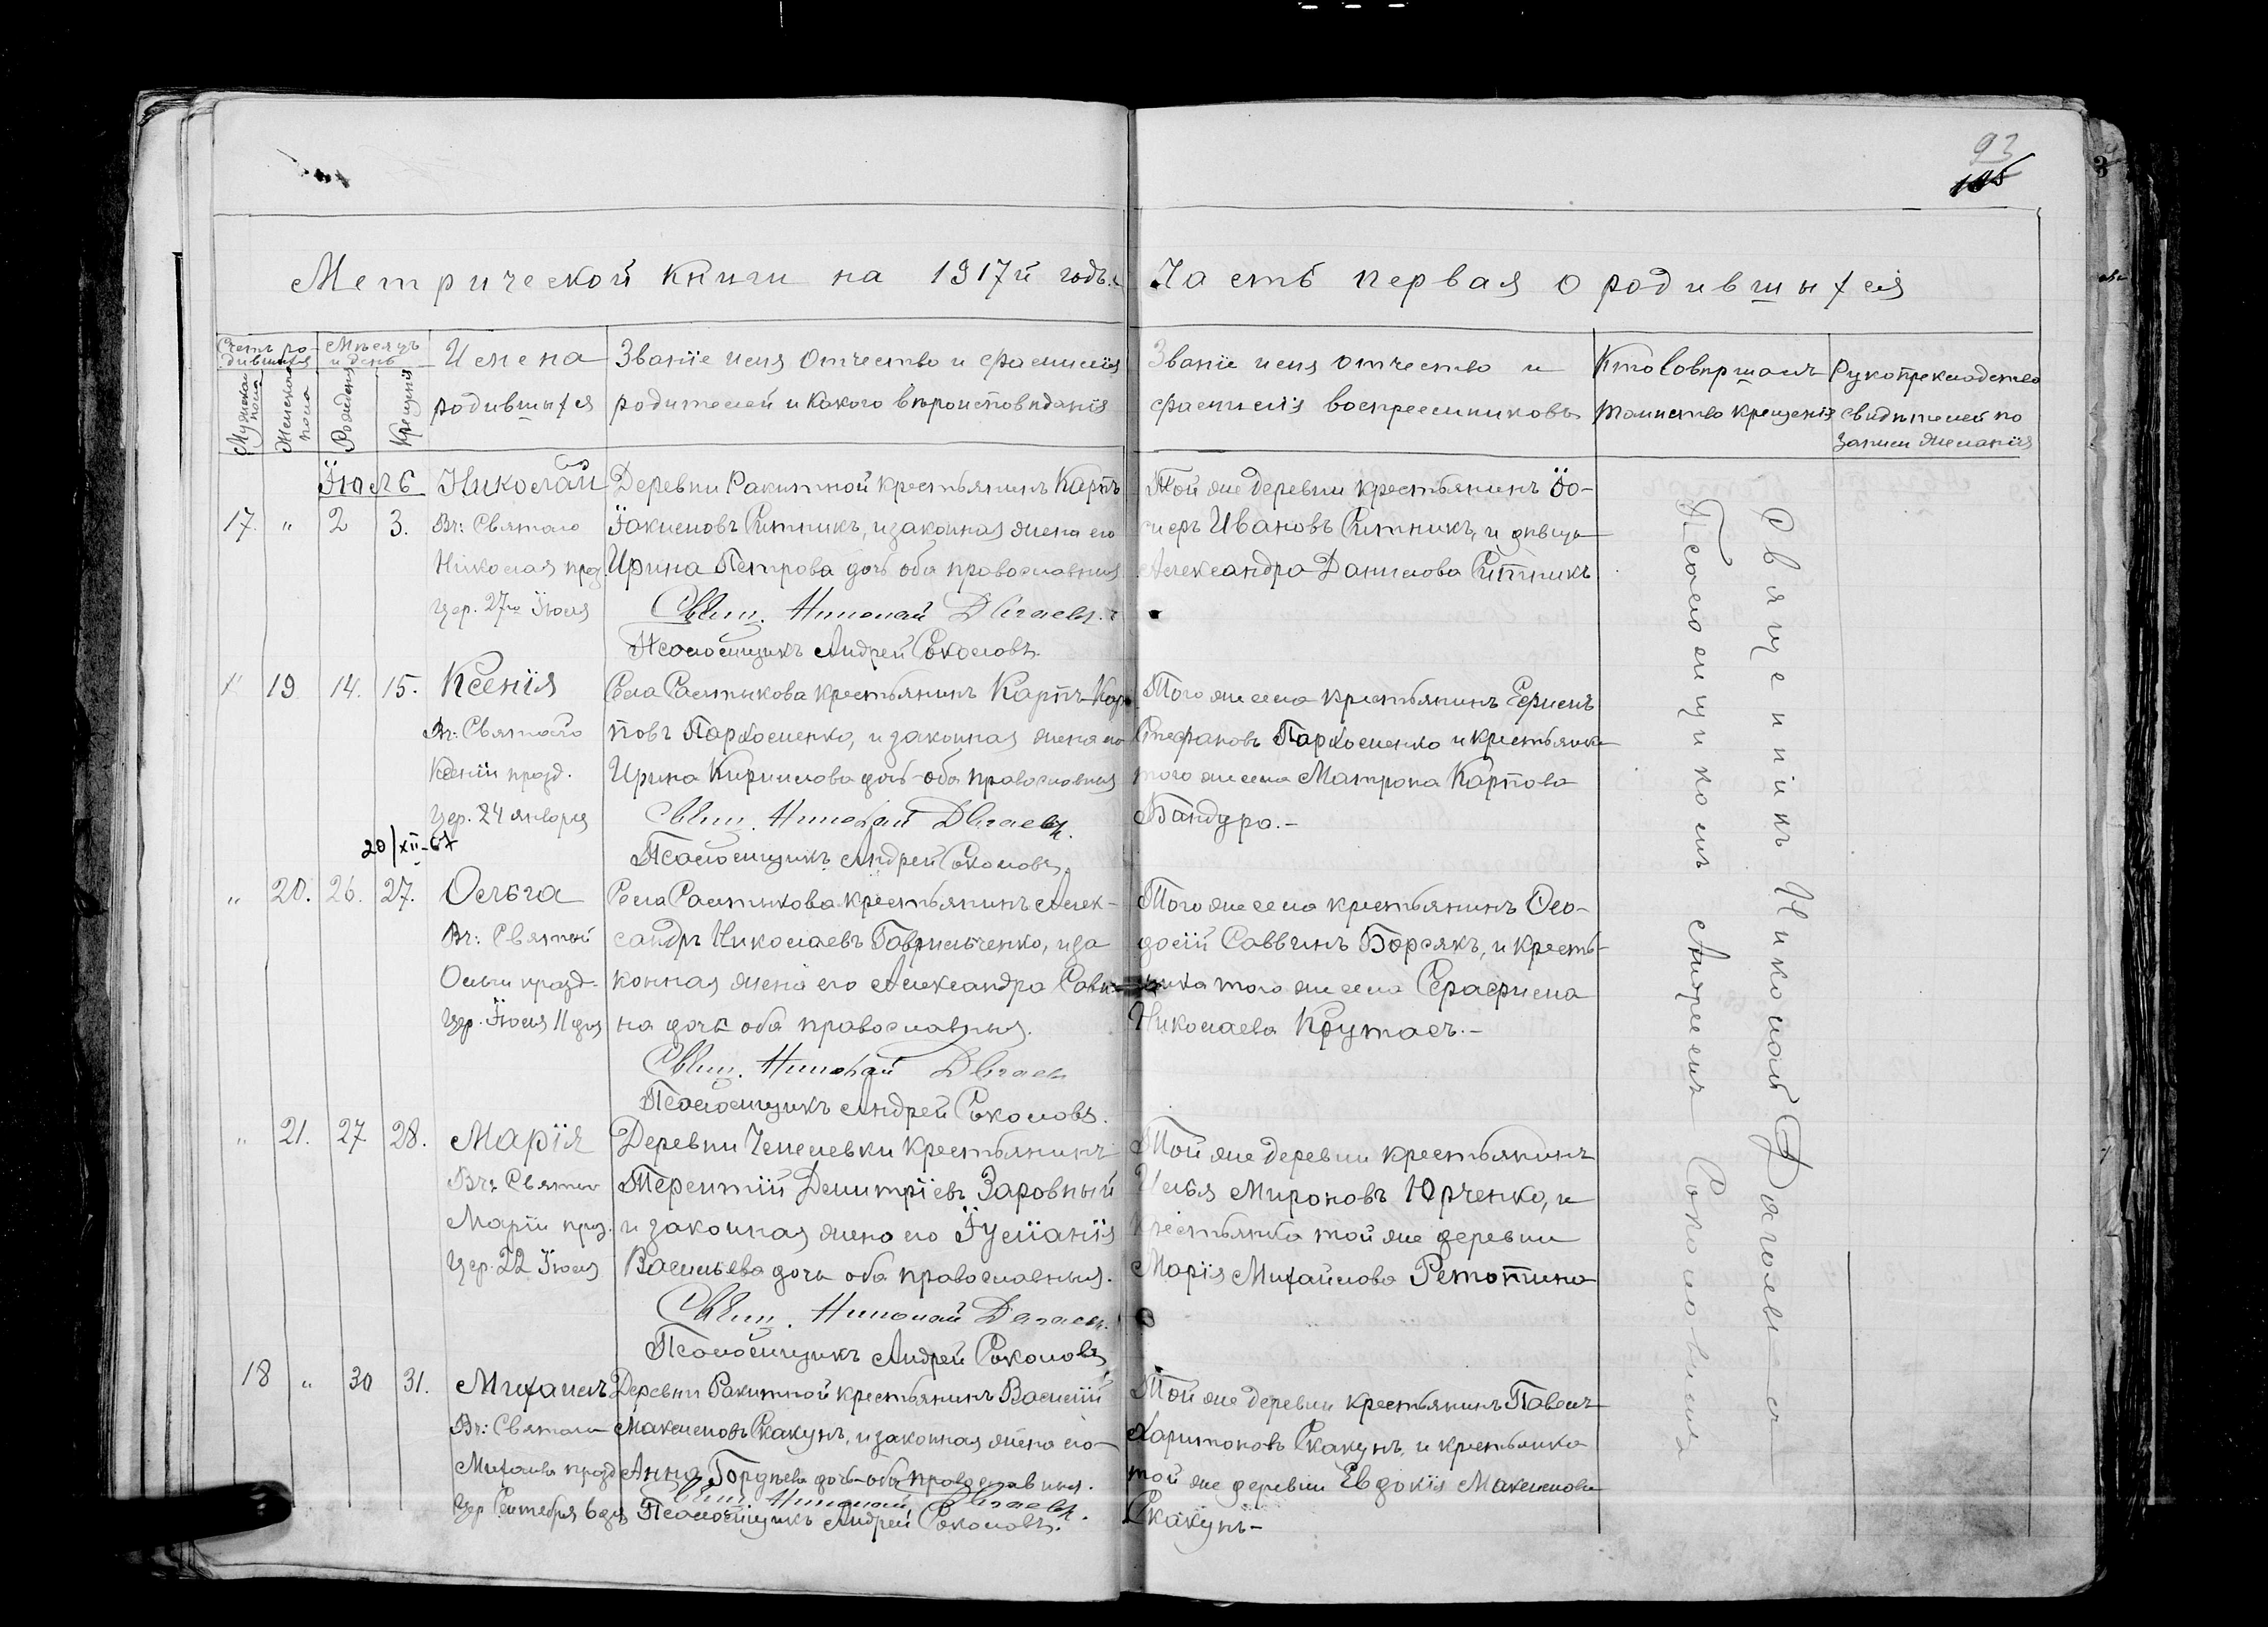 93
Метрической книги на 1917й годъ.
Часть первая о родившихся
Счетъ ро-
дившихся
Мѣсяцъ
и день
Мужеска
пола
Женска
пола
Рожденія
Крещенія
Имена
родившихся
Званіе имя отчество и фамилія
родителей и какого вѣроисповѣданія
Званіе имя отчество и
фамилія воспреемниковъ
Кто совершалъ
таинство крещенія
Рукоприкладство
свидѣтелей по
записи желанія
Іюль
Николай Деревни Ракитной крестьянинъ Карпъ
17. " 2 3. Въ: Святаго Іакимовъ Ситникъ, и законная жена его
Николая праз. Ирина Петрова дочь оба православныя
цер. 27го Іюля Свящ. Николай
Псаломщикъ Андрей Соколовъ.
Той же деревни крестьянинъ Іо-
сифъ Ивановъ Ситникъ, и дѣвица
Александра Данилова Ситникъ
" 19. 14. 15. Ксенія Села Салтыкова крестьянинъ Карпъ Кар-
Въ: Святаго повъ Пархоменко, и законная жена его
Ксеніи празд. Ирина Кириллова дочь оба православныя
цер. 24 января Свящ. Николай
20/XII-67
Псаломщикъ Андрей Соколовъ
Того же села крестьянинъ Ефимъ
Стефановъ Пархоменко и крестьянка
того же села Матрона Карпова
Бандура.-
" 20. 26. 27. Ольга Села Салтыкова крестьянинъ Алек-
Въ: Святой сандръ Николаевъ Гаврильченко, и за
Ольги празд. конная жена его Александра Савви
цер. Іюля 11 дня на дочь оба православныя.
Свящ. Николай
Псаломщикъ Андрей Соколовъ.
Того же села крестьянинъ Ѳео-
досій Саввинъ Борсякъ, и кресть-
янка того же села Серафима
Николаева Крутась.-
" 21. 27 28. Марія Деревни крестьянинъ
Въ: Святой Терентій Димитріевъ Заровный
Маріи праз. и законная жена его Іуліанія
цер. 22 Іюля Васильева дочь оба православныя.
Свящ. Николай
Псаломщикъ Андрей Соколовъ
Той же деревни крестьянинъ
Илья Мироновъ Юрченко, и
крестьянка той же деревни
Марія Михайлова Репотина
18 " 30 31. Михаилъ Деревни Ракитной крестьянинъ Василій
Въ: Святаго Максимовъ Скакунъ, и законная жена его
Михаила празд Анна Гордѣева дочь оба православныя.
цер Сентября 6 дня Свящ. Николай
Псаломщикъ Андрей Соколовъ.
Той же деревни крестьянинъ Павелъ
Харитоновъ Скакунъ, и крестьянка
той же деревни Евдокія Максимова
Скакунъ-
Священникъ Николай
Псаломщикомъ Андреемъ Соколовымъ